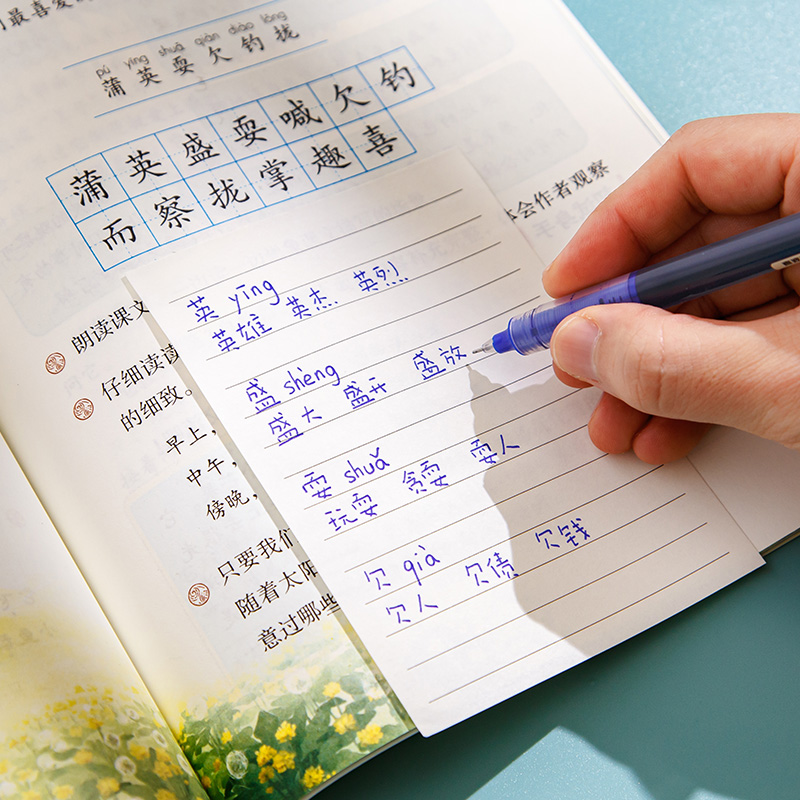 最喜爱
pú yīng shuǎ qiàn diào lǒng
蒲 英 耍 欠 钓 拢
蒲英盛耍喊欠钓
而察拢掌趣喜
朗读课文 会作者观察
仔细读读
的细致。
早上，
中午，
傍晚，
只要我们
随着太阳
意过哪些
英 yīng
英雄 英杰 英烈
盛 shèng
盛大 盛开 盛放
耍 shuǎ
玩耍 贪耍 耍人
欠 qià
欠人 欠债 欠钱